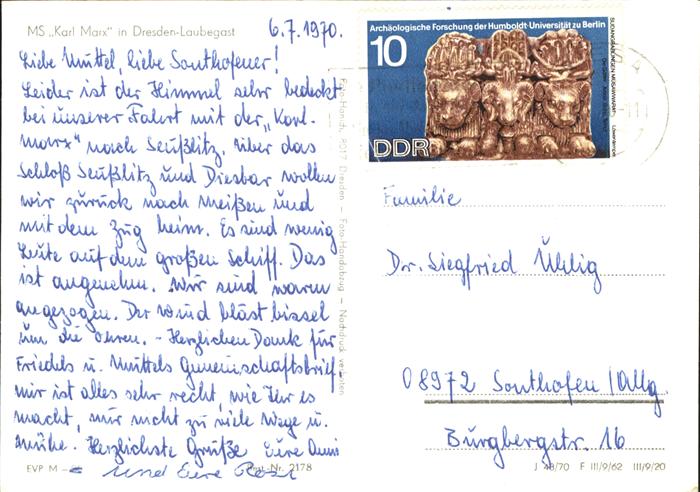 MS „Karl Marx" in Dresden-Laubegast
6.7.1970.
Liebe Muttel, liebe Sonthofener!
Leider ist der Himmel sehr bedeckt
bei unserer Fahrt mit der „Karl-
Marx" nach Seußlitz. Über das
Schloß Seußlitz und Diesbar wollen
wir zurück nach Meißen und
mit dem Zug heim. Es sind wenig
Leute auf dem großen Schiff. Das
ist angenehm. Wir sind warm
angezogen. Der Wind bläst bissel
um die Ohren. - Herzlichen Dank für
Friedels u. Muttels Gemeinschaftsbrief.
Mir ist alles sehr recht, wie Ihr es
macht, nur nicht zu viele Wege u.
Mühe. Herzlichste Grüße Eure
und Eure
EVP M
Best.-Nr. 2178
Dresden – Foto-Handabzug – Nachdruck verboten
Archäologische Forschung der Humboldt-Universität zu Berlin
10
DDR
Familie
Dr. Siegfried Uhlig
08972 Sonthofen/Allg.
Burgbergstr. 16
J 48/70 F III/9/62 III/9/20